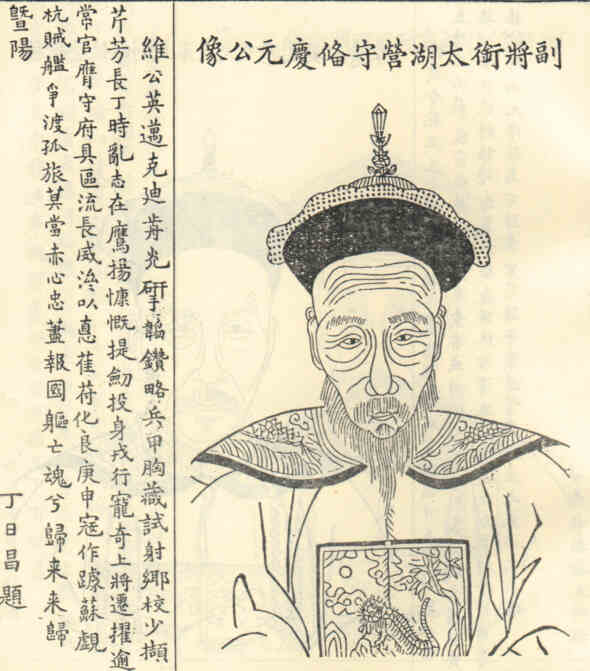 副將銜太湖營守俻慶元公像
維公英邁克迪歬光研韜鑽略兵甲胸藏試射鄉校少擷
芹芳長丁時亂志在鷹揚慷慨提劒投身戎行寵奇上將遷擢逾
常官膺守府具區流長威濟以惪萑苻化良庚申寇作躪蘇覷
杭賊艦爭渡孤旅莫當赤心忠藎報國軀亡魂兮歸来来歸
暨陽
丁日昌題